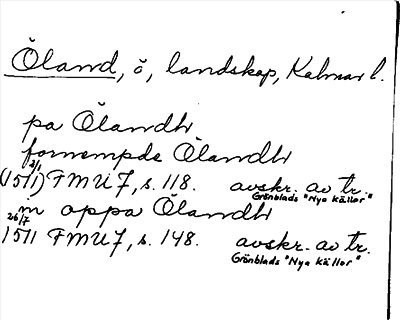 Öland, ö, landskap, Kalmar l.
pa Ölandh
fornempde Ölandh
2/1
(1511) FMU 7, s. 118. avskr. av tr.
Grönblads "Nya källor"
m oppa Ölandh
26/7
1511 FMU 7, s. 148. avskr. av tr.
Grönblads "Nya källor"